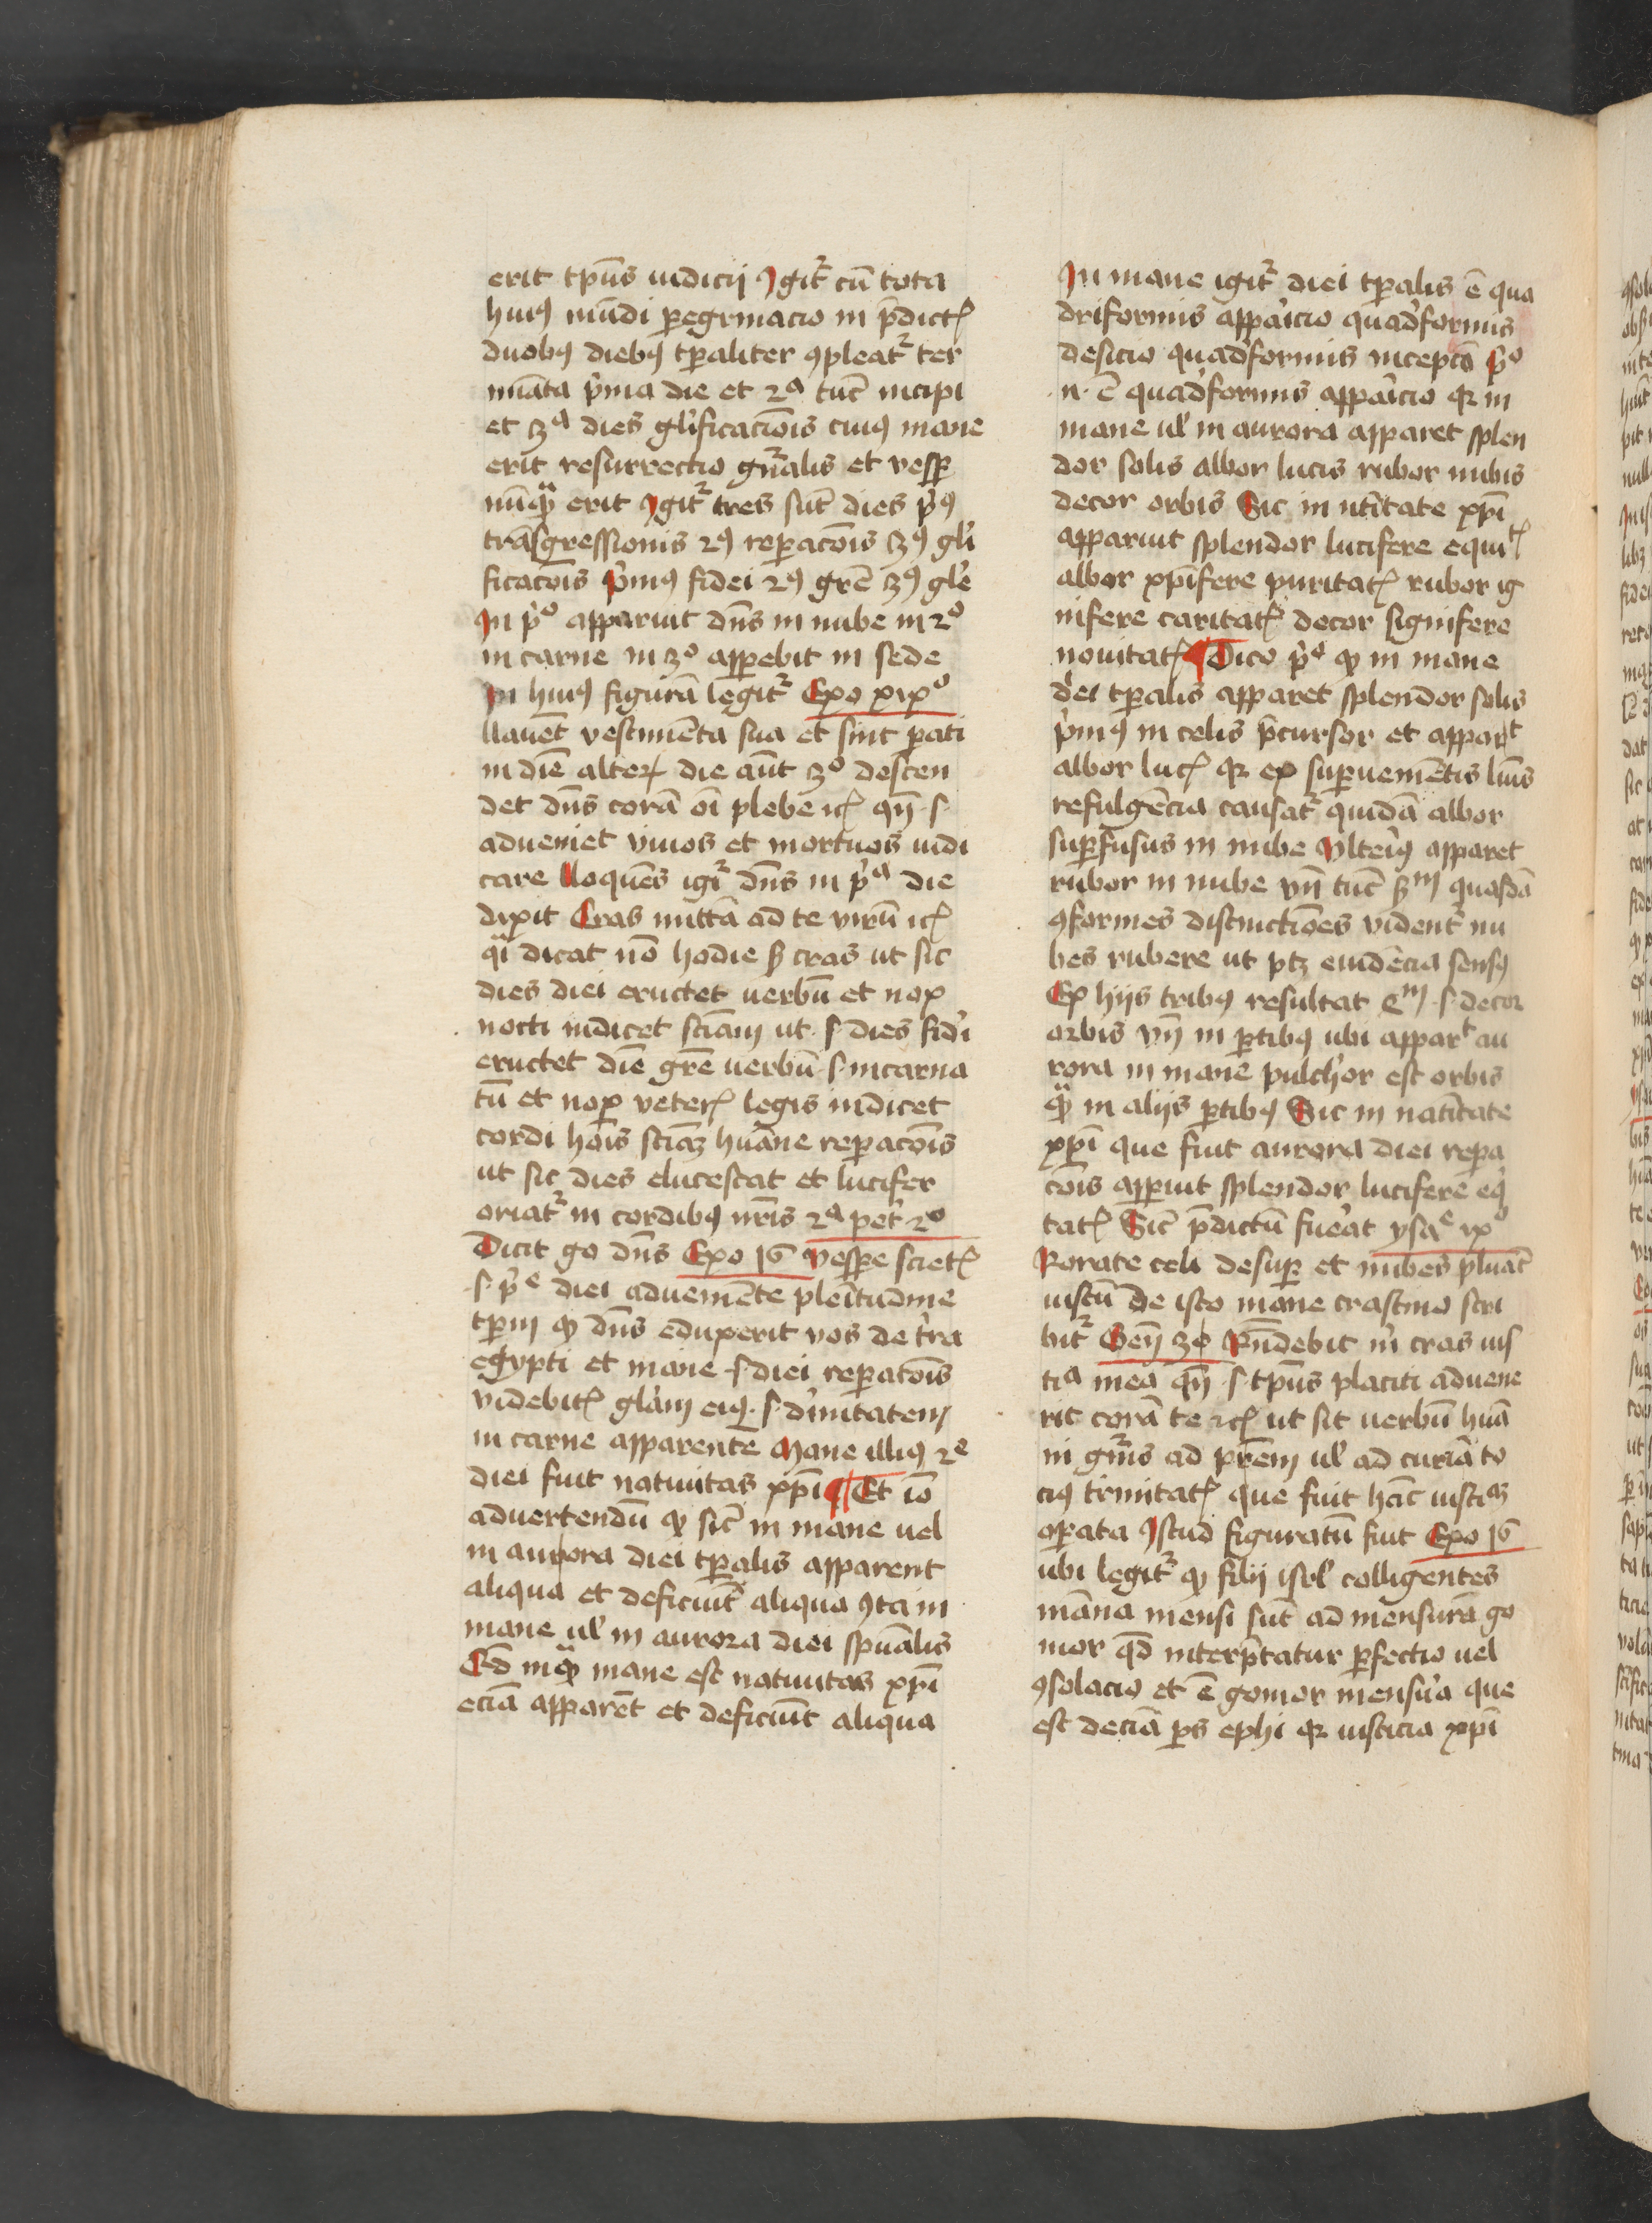 erit tp̄us iudicij Igitr̉ cū tota
huiꝰ mūdi ꝑegrinacio in p̄dictꝭ
duobꝰ diebꝰ tꝑaliter ꝯpleatr̉ ter
mīata p̉ma die et 2ᵃ tūc incipi
et 3ᵃ dies glīficacōnis cuiꝰ mane
erit resurrectio gn̄ralis et vesꝑ
nūqͣ erit Igitr̉ tres sūt dies p̉ꝰ
trāsgressionis 2ꝰ reꝑacōis 3ꝰ glī
ficacōis p̉mꝰ fidei 2ꝰ grē 3ꝰ glē
In p̉ᵒ apparuit dn̄s in nube in 2ᵒ
in carne in 3ᵒ apꝑebit in sede
In huiꝰ figurā legitr̉ Exo xixᵒ
llauēt vestimēta sua et sint ꝑati
in diē alterꝭ die aūt 3ᵒ descen
det dn̄s corā oī plebe ⁊cꝭ qn̄ .s.
adueniet viuos et mortuos iudi
care lloquēs igr̉ dn̄s in p̉ᵃ die
dixit Cras mittā ad te virū ⁊cꝭ
qͣi dicat nō hodie ſꝫ cras ut sic
dies diei eructet uerbū et nox
nocti indicet sciām ut .s. dies fid̉i
eructet diē grē uerbū .s. incarna
tū et nox veterꝭ legis indicet
cordi hoīs sciāꝫ hūane reꝑacōis
ut sic dies elucescat et lucifer
oriatr̉ in cordibꝰ nr̄is 2ᵃ pet̉ 2ᵒ
Dicit go dn̄s Exo 16 vesꝑe scietꝭ
.s. p̉ᵉ diei aduemēte plenītudine
tꝑm ꝙ dn̄s eduxerit vos de t̉ra
egypti et mane .s. diei reꝑatōis
videbitꝭ gl̉am eiꝰ .s. dīuitatem
in carne apparentē Mane illiꝰ 2ᵉ
diei fuit natiuitas xp̄i ¶ Et iō
aduertendū ꝙ sic̄ in mane uel
in aurora diei tꝑalis apparent
aliqua et deficiūt aliqua ꝯta in
mane ul̉ in aurora diei spūalis
Ed inqͣ mane est natiuitas xp̄i
eciā apparēt et deficiūt aliqua
In mane igitr̉ diei tꝑalis ē qua
driformis appāicio quad̉formis
desicio quad̉formis inceptō p̉ᵒ
.n. ē quad̉formis appāicio qꝛ in
mane ul̉ in aurora apparet splen
dor solis albor lucis rubor nubis
decor orbis Sic in nt̄itate xp̄i
apparuit splendor lucifere equitꝭ
albor xp̄ifere puritatꝭ rubor ig
nifere caritatꝭ decor signifere
nouitatꝭ ¶ Dico p̉ᵒ ꝙ in mane
d̉ei tꝑalis apparet splendor solis
p̉mꝰ in celis p̄cursor et apparᵗ
albor lucꝭ qꝛ ex suꝑuemētis lūis
refulgēcia causatr̉ quidā albor
suꝑfusus in nube Vlteriꝰ apparet
rubor in nube vn̄ tūc ſꝫm quasdā
ꝯformes distinctiōes vident̉ nu
bes rubere ut ptꝫ euidēcia sensꝰ
Ex hijs tribꝰ resultat ᵉm .s. decor
orbis vn̄ in ꝑtibꝰ ubi apparᵗ au
rora in mane pulch̉or est orbis
qͣ in alijs ꝑtibꝰ Sic in natītate
xp̄i que fuit aurora diei reꝑa
cōis apꝑuit splendor lucifere eq̉
tatꝭ Sic̄ p̄dictū fuerat ysaᵉ ixᵒ
Rorate celi desuꝑ et nubes pluāt
iustū De isto mane crastino scri
bitr̉ Gen̄ 30 Rn̄debit m̉ cras ius
tiᵃ mea qn̄ .s. tp̄us placiti aduene
rit corā te ⁊cꝭ ut sit uerbū hūa
ni gn̄is ad pr̄em ul̉ ad curiā to
ciꝰ trinitatꝭ que fuit hāc iustiaꝫ
oꝑata Istud figuratū fuit Exo 16
ubi legitr̉ ꝙ filij isrl̉ colligentes
māna mensi sūt ad mensurā go
mor qd̄ interp̄tatur ꝑfectio uel
ꝯsolacio et ē gomor mens̉ra que
est deciā ꝑs ephi qꝛ iusticia xp̄i